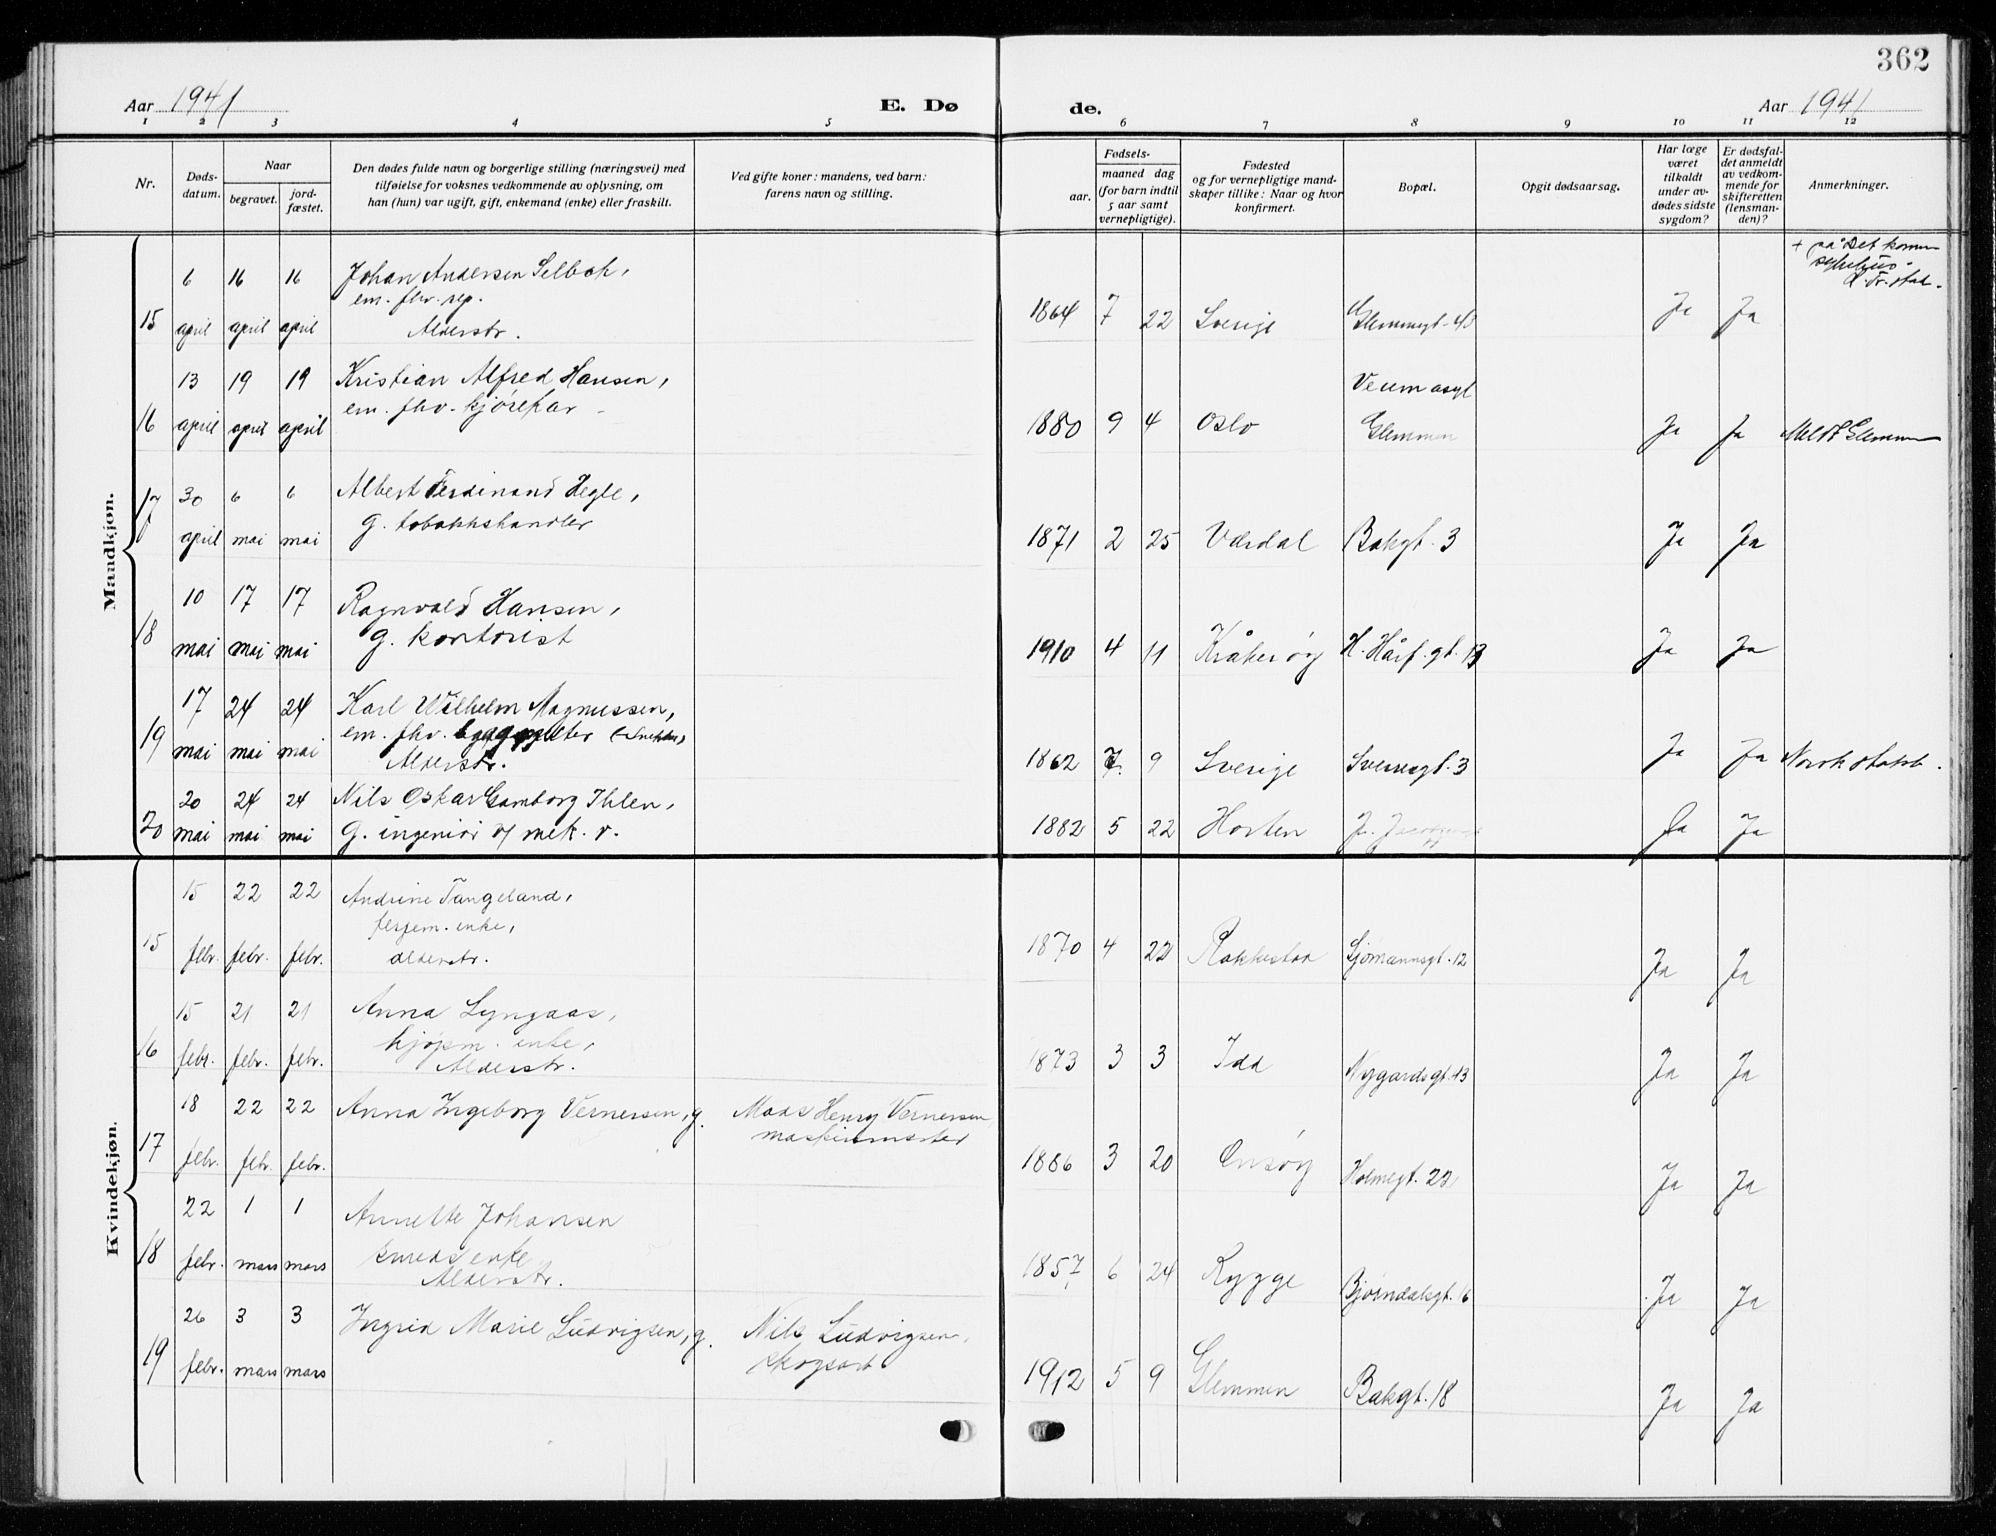 362
Aar 1941
E. Dø
de.
Aar 1941
1 2 3 4 5 6 7 8 9 10 11 12
Nr.
Døds-
datum.
Naar
begravet.
jord-
fæstet.
Den dødes fulde navn og borgerlige stilling (næringsvei) med
tilføielse for voksnes vedkommende av oplysning, om
han (hun) var ugift, gift, enkemand (enke) eller fraskilt.
Ved gifte koner: mandens, ved barn:
farens navn og stilling.
Fødsels-
aar.
maaned dag
(for barn indtil
5 aar samt
vernepligtige).
Fødested
og for vernepligtige mand-
skaper tillike: Naar og hvor
konfirmert.
Bopæl.
Opgit dødsaarsag.
Har læge
været
tilkaldt
under av-
dødes sidste
sygdom?
Er dødsfal-
det anmeldt
av vedkom-
mende for
skifteretten
(lensman-
den)?
Anmerkninger.
Mandkjøn.
15 6 april 16 april 16 april
Johan Andersen Selbak,
em. fhv. rep.
Alderstr.
1864 7 22 Sverige Glemmegt. Ja Ja
+ på Det komm
sykehus
16 13 april 19 april 19 april
Kristian Alfred Hansen,
em. fhv. kjørekar
1880 9 4 Oslo
Veum asyl
Glemmen
Ja Ja Meldt Glemmen
17 30 april 6 mai 6 mai
Albert Ferdinand Hegle,
g. tobakkshandler
1871 2 25 Værdal Bakgt. 3 Ja Ja
18 10 mai 17 mai 17 mai
Ragnvald Hansen,
g. kontorist
1910 4 11 Kråkerøy H. Hårf. gt. 13 Ja Ja
19 17 mai 24 mai 24 mai
Karl Wilhelm Magnussen,
em. fhv.
Alderstr.
1862 7. 9 Sverige Sverresgt. 3 Ja Ja Norsk statsb.
20 20 mai 24 mai 24 mai
Nils Oskar Gamborg Ihlen,
g. ingeniør v/ mek. v.
1882 5 22 Horten Ja Ja
Kvindekjøn.
15 15 febr. 22 febr. 22 febr.
Andrine Tangeland,
fergem. enke,
alderstr.
1870 4 22 Rakkestad Sjømannsgt. 12 Ja Ja
16 15 febr. 21 febr. 21 febr.
Anna Lyngaas,
kjøpm. enke,
Alderstr.
1873 3 3 Idd Nygardsgt. 43 Ja Ja
17 18 febr. 22 febr. 22 febr.
Anna Ingeborg Vernersen, g.
Maas Henry Vernersen
maskinmester
1886 3 20 Onsøy Holmegt. 22 Ja Ja
18 22 febr. 1 mars 1 mars
Annette Johansen
smeds enke
Alderstr.
1857 6 24 Rygge Bjørndalsgt. 16 Ja Ja
19 26 febr. 3 mars 3 mars
Ingrid Marie Ludvigsen, g.
Nils Ludvigsen,
skogsarb
1912 5 9 Glemmen Bakgt. 18 Ja Ja